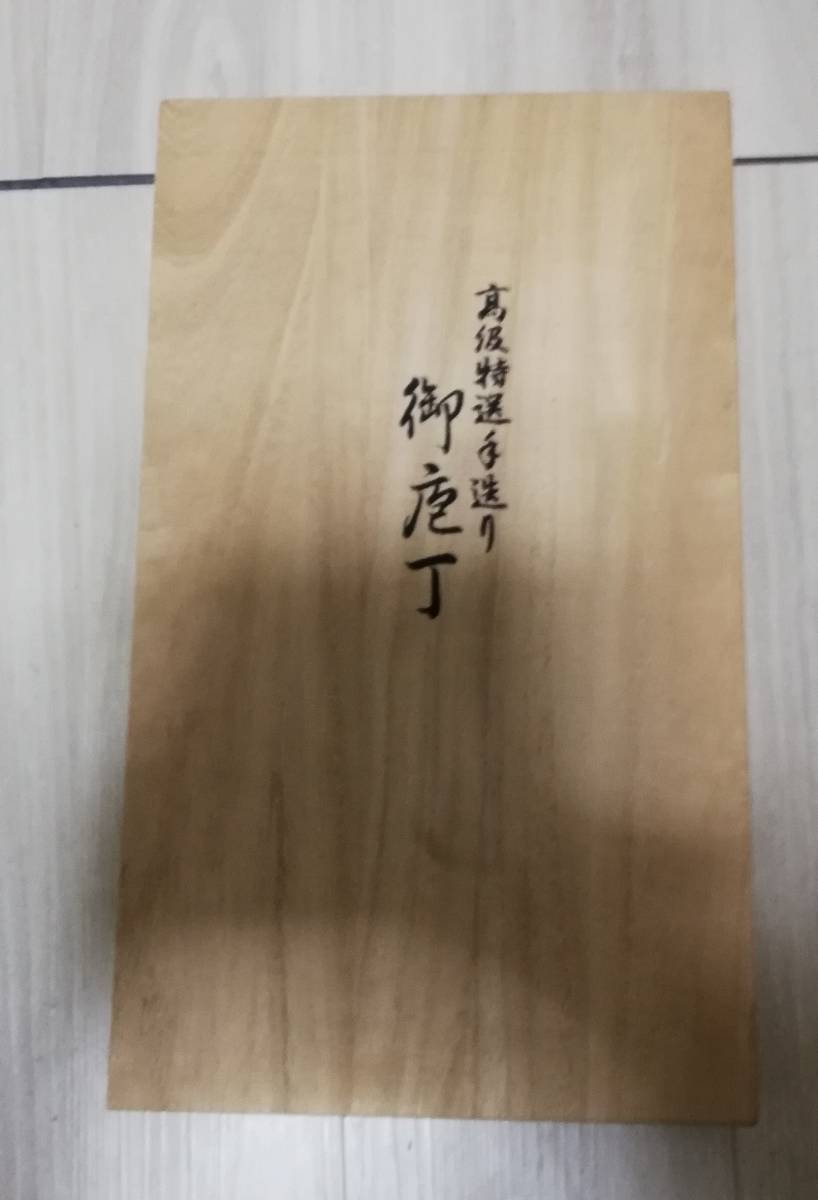 高級特選手造り
御庖丁